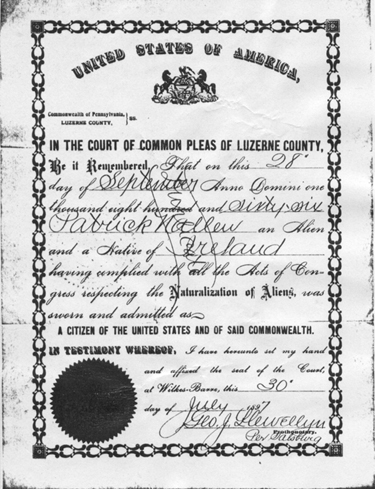 UNITED STATES OF AMERICA,
Commonwealth of Pennsylvania,
LUZERNE COUNTY, } ss.
IN THE COURT OF COMMON PLEAS OF LUZERNE COUNTY,
Be it Remembered, That on this 28"
day of September Anno Domini one
thousand eight hundred and sixty-six
Patrick Hallen an Alien
and a Native of Ireland
having complied with all the Acts of Con-
gress respecting the Naturalization of Aliens, was
sworn and admitted as
A CITIZEN OF THE UNITED STATES AND OF SAID COMMONWEALTH.
IN TESTIMONY WHEREOF, I have hereunto set my hand
and affixed the seal of the Court,
at Wilkes-Barre, this 30"
day of July 1897
Geo. J. Llewellyn
Prothonotary.
Per